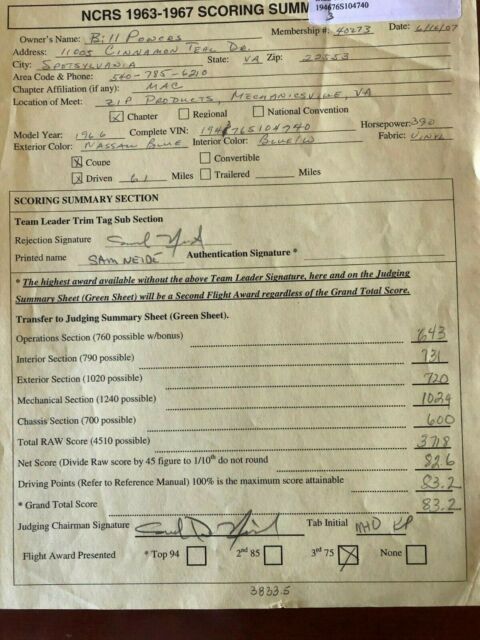 NCRS 1963-1967 SCORING SUMM
194676S104740
3
Owner's Name: Bill Powers Membership #: 40273 Date: 6/16/07
Address: 11005 Cinnamon Teal Dr.
City: Spotsylvania State: VA Zip: 22553
Area Code & Phone: 540-785-6210
Chapter Affiliation (if any): MAC
Location of Meet: ZIP Products, Mechanicsville, VA
Chapter Regional National Convention
Model Year: 1966 Complete VIN: Horsepower: 390
Exterior Color: Nassau Blue Interior Color: Blue/W Fabric: Vinyl
Coupe Convertible
Driven 61 Miles Trailered Miles
SCORING SUMMARY SECTION
Team Leader Trim Tag Sub Section
Rejection Signature
Printed name SAM NEIDE Authentication Signature *
* The highest award available without the above Team Leader Signature, here and on the Judging
Summary Sheet (Green Sheet) will be a Second Flight Award regardless of the Grand Total Score.
Transfer to Judging Summary Sheet (Green Sheet).
Operations Section (760 possible w/bonus) 643
Interior Section (790 possible) 731
Exterior Section (1020 possible) 720
Mechanical Section (1240 possible) 1024
Chassis Section (700 possible) 600
Total RAW Score (4510 possible) 3718
Net Score (Divide Raw score by 45 figure to 1/10th do not round 82.6
Driving Points (Refer to Reference Manual) 100% is the maximum score attainable 83.2
* Grand Total Score 83.2
Judging Chairman Signature Tab Initial
Flight Award Presented * Top 94 * 2nd 85 3rd 75 None
3833.5